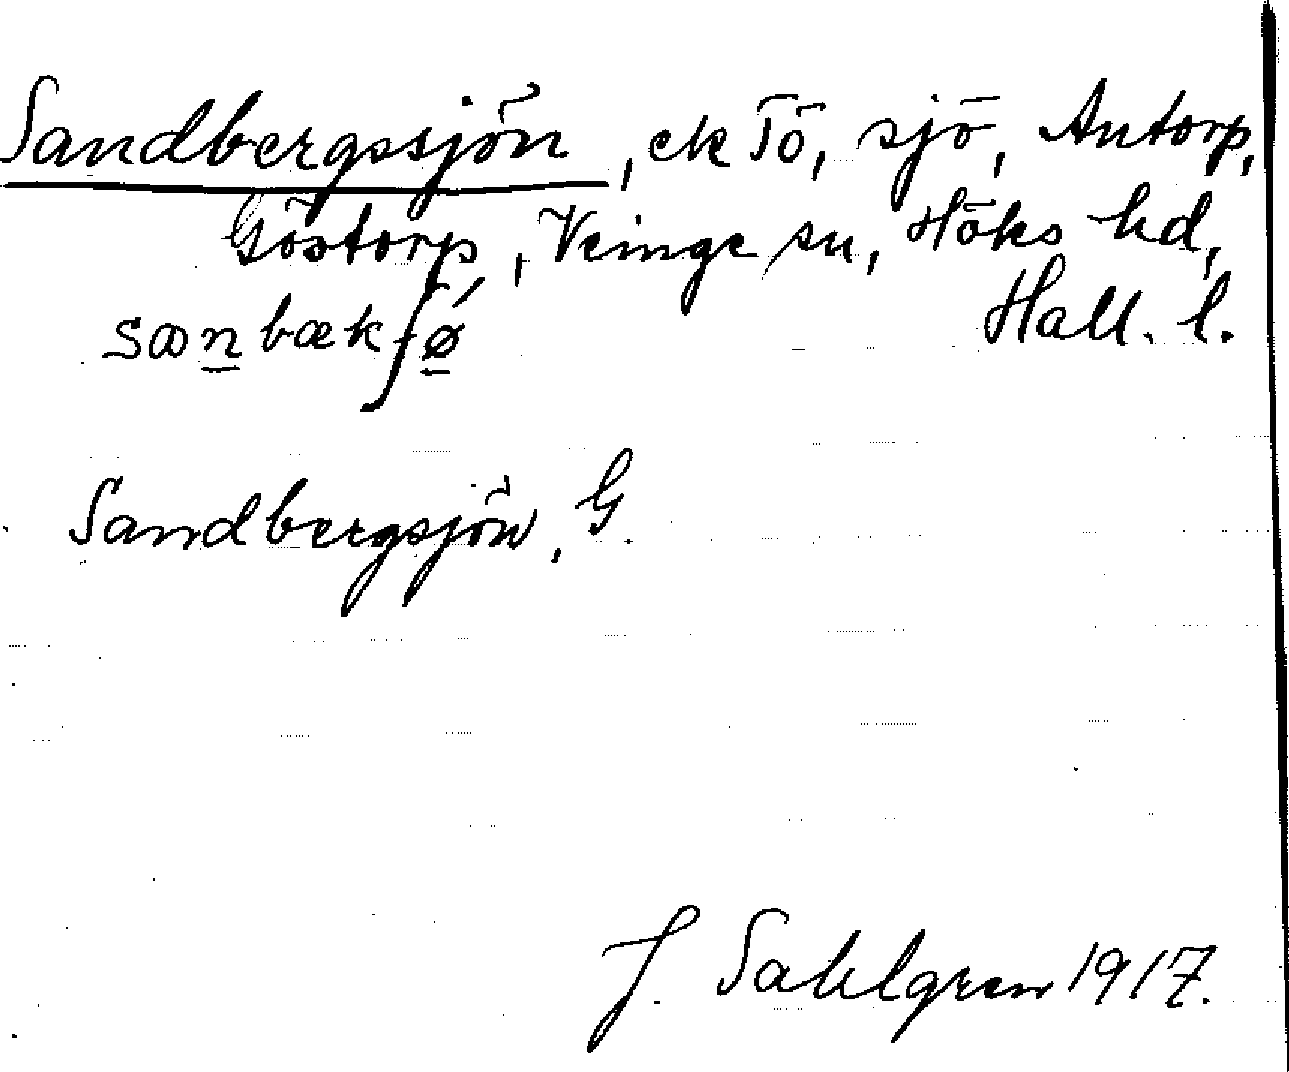 Sandbergssjön, ek Tö, sjö, Antorp,
Göstorp, Veinge sn, Höks hd,
Hall. l.
sanbækʃø´
Sandbergsjön, G.
J. Sahlgren 1917.